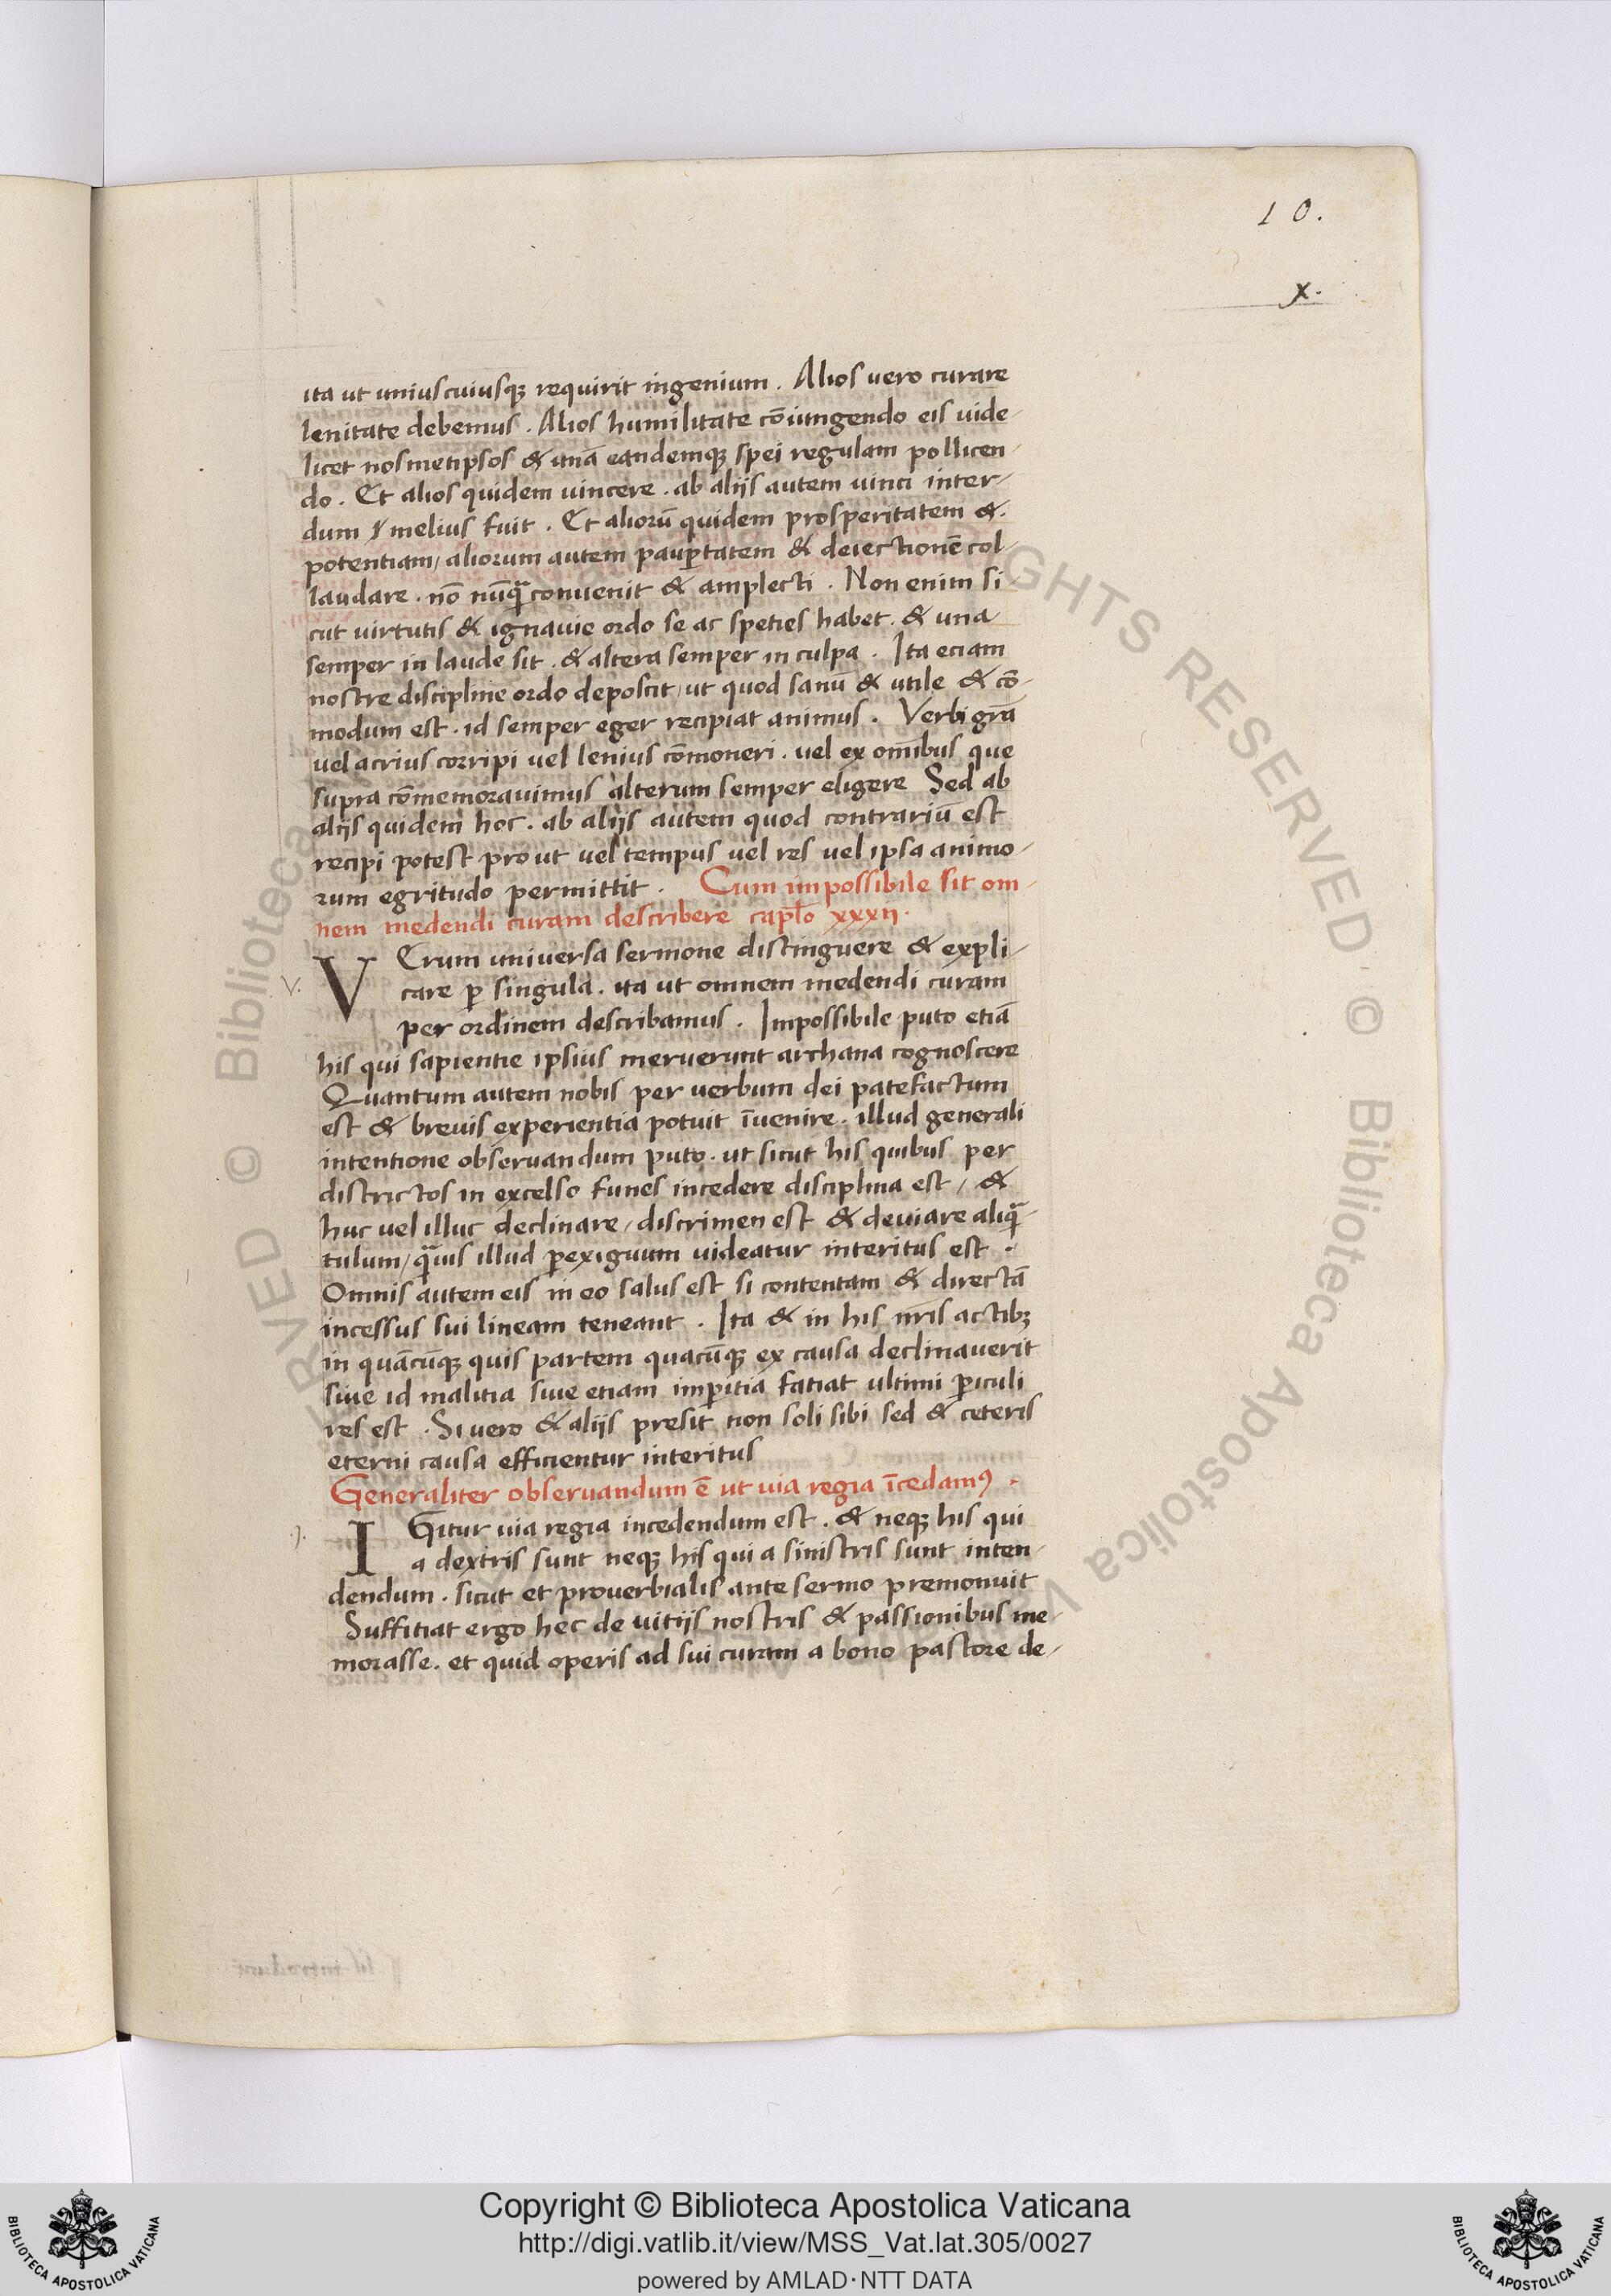 10.
x.
ita ut uniuscuiusqꝫ requirit ingenium. Alios uero curare
lenitate debemus. Alios humilitate cōiungendo eis uide-
licet nosmetipsos & unā eandemqꝫ spei regulam pollicen-
do. Et alios quidem uincere. ab aliis autem uinci inter-
dum melius fuit. Et aliorū quidem prosperitatem &.
potentiam/ aliorum autem paup̄tatem & deiectionē col-
laudare. nō nūq̄ conuenit & amplecti. Non enim si-
cut uirtutis & ignauie ordo se ac speties habet. & una
semper in laude sit. & altera semper in culpa. Ita eciam
nostre discipline ordo deposcit/ ut quod sanū & utile & cō-
modum est. id semper eger recipiat animus. Verbi grā
uel acrius corripi uel lenius cōmoneri. uel ex omībus que
supra cōmemorauimus alterum semper eligere Sed ab
aliis quidem hoc. ab aliis autem quod contrariū est
recipi potest prout uel tempus uel res uel ipsa animo-
rum egritudo permittit. Cum impossibile sit om-
nem medendi curam describere cap̄lo xxxii.
v. VErum uniuersa sermone distinguere & expli-
care p̱ singula. ita ut omnem medendi curam
per ordinem describamus. Impossibile puto etiā
his qui sapientie ipsius meruerunt archana cognoscere
Quantum autem nobis per uerbum dei patefactum
est & breuis experientia potuit īuenire. illud generali
intentione obseruandum puto. ut sicut his quibus per
districtos in excelso funes incedere disciplina est/ &
huc uel illuc declinare/ discrimen est & deuiare aliq̄-
tulum/ q̄uis illud p̱exiguum uideatur interitus est.
Omnis autem eis in eo salus est si contentam & directā
incessus sui lineam teneant. Ita & in his nr̄is actibꝫ
in quācūqꝫ quis partem quacūqꝫ ex causa declinauerit
siue id malitia siue etiam imp̱itia fatiat ultimi p̱iculi
res est. Si uero & aliis presit non soli sibi sed & ceteris
eterni causa efficientur interitus
Generaliter obseruandum ē ut uia regia īcedamꝰ.
i. IGitur uia regia incedendum est. & neqꝫ his qui
a dextris sunt neqꝫ his qui a sinistris sunt inten-
dendum. sicut et prouerbialis ante sermo premonuit
Suffitiat ergo hec de uitiis nostris & passionibus me-
morasse. et quid operis ad sui curam a bono pastore de-
RIGHTS RESERVED © Biblioteca Apostolica Vaticana
Copyright © Biblioteca Apostolica Vaticana
http://digi.vatlib.it/view/MSS_Vat.lat.305/0027
powered by AMLAD·NTT DATA
BIBLIOTECA APOSTOLICA VATICANA
BIBLIOTECA APOSTOLICA VATICANA